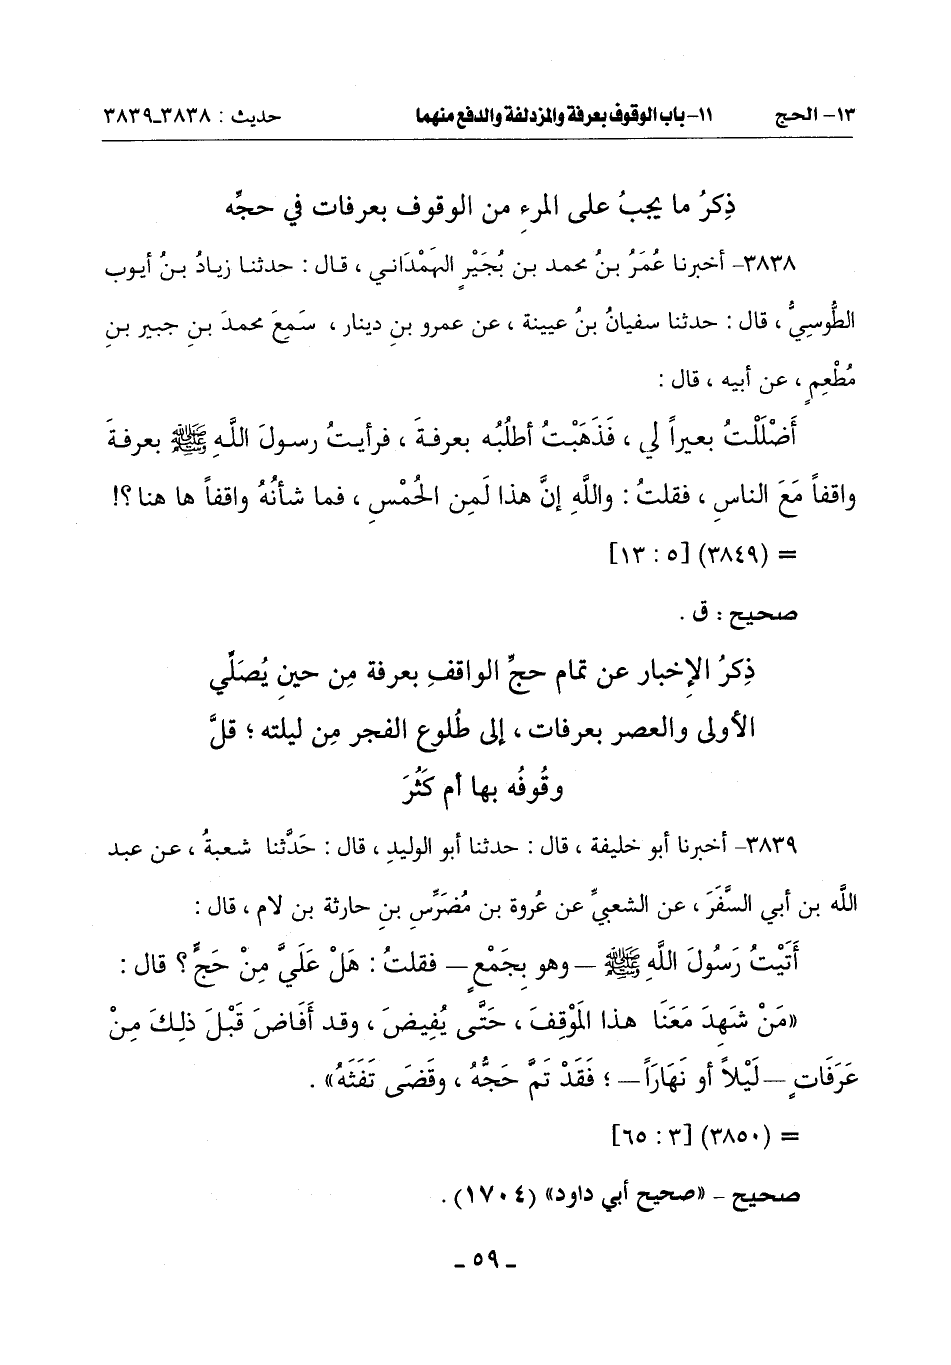 ١٣- الحج ١١- باب الوقوف بعرفة والمزدلفة والدفع منهما حديث : ٣٨٣٨ـ٣٨٣٩
ذِكرُ ما يجبُ على المرءِ من الوقوف بعرفات في حجِّه
٣٨٣٨– أخبرنا عُمَرُ بنُ محمد بن بُجَيْرٍ الهَمْدَاني ، قال : حدثنا زيادُ بنُ أيوب
الطُّوسيُّ ، قال : حدثنا سفيانُ بنُ عيينة ، عن عمرو بنِ دينار ، سَمِعَ محمدَ بنِ جبير بنِ
مُطْعِمٍ ، عن أبيه ، قال :
أَضْلَلْتُ بعيراً لي ، فَذَهَبْتُ أطلُبُه بعرفةَ ، فرأيتُ رسولَ اللهِ ﷺ بعرفةَ
واقفاً مَعَ الناسِ ، فقلتُ : واللَّهِ إنَّ هذا لَمِن الحُمْسِ ، فما شأنُهُ واقفاً ها هنا ؟!
= (٣٨٤٩) [٥ : ١٣]
صحيح : ق .
ذِكرُ الإخبار عن تمام حجِّ الواقفِ بعرفة مِن حينِ يُصَلِّي
الأولى والعصر بعرفات ، إلى طُلوع الفجر مِن ليلته ؛ قلَّ
وقُوفُه بها أم كَثُرَ
٣٨٣٩– أخبرنا أبو خليفة ، قال : حدثنا أبو الوليدِ ، قال : حَدَّثنا شعبةُ ، عن عبد
اللَّه بن أبي السَّفَرَ ، عن الشعبيِّ عن عُروة بن مُضَرِّسِ بنِ حارثة بن لام ، قال :
أَتَيْتُ رَسُولَ اللَّهِ ﷺ – وهو بِجَمْعٍ – فقلتُ : هَلْ عَلَيَّ مِنْ حَجٍّ ؟ قال :
«مَنْ شَهِدَ مَعَنَا هذا المَوْقِفَ ، حَتَّى يُفِيضَ ، وقد أَفَاضَ قَبْلَ ذلِكَ مِنْ
عَرَفَاتٍ – لَيْلاً أو نَهَاراً – ؛ فَقَدْ تَمَّ حَجُّهُ ، وقَضَى تَفَثَهُ» .
= (٣٨٥٠) [٣ : ٦٥]
صحيح – «صحيح أبي داود» (١٧٠٤) .
ـ ٥٩ ـ